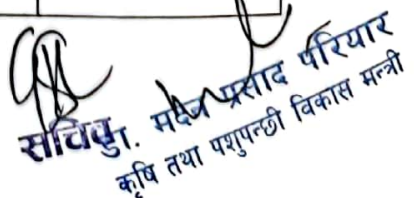 सचिव
प्रसाद परियार
कृषि तथा पशुपन्छी विकास मन्त्री